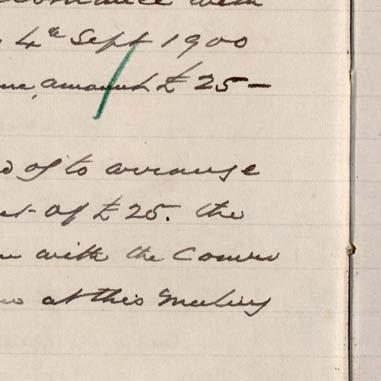 with
4th Sept 1900
amount £25—
of to arrange
of £25. the
with the
at this Meeting